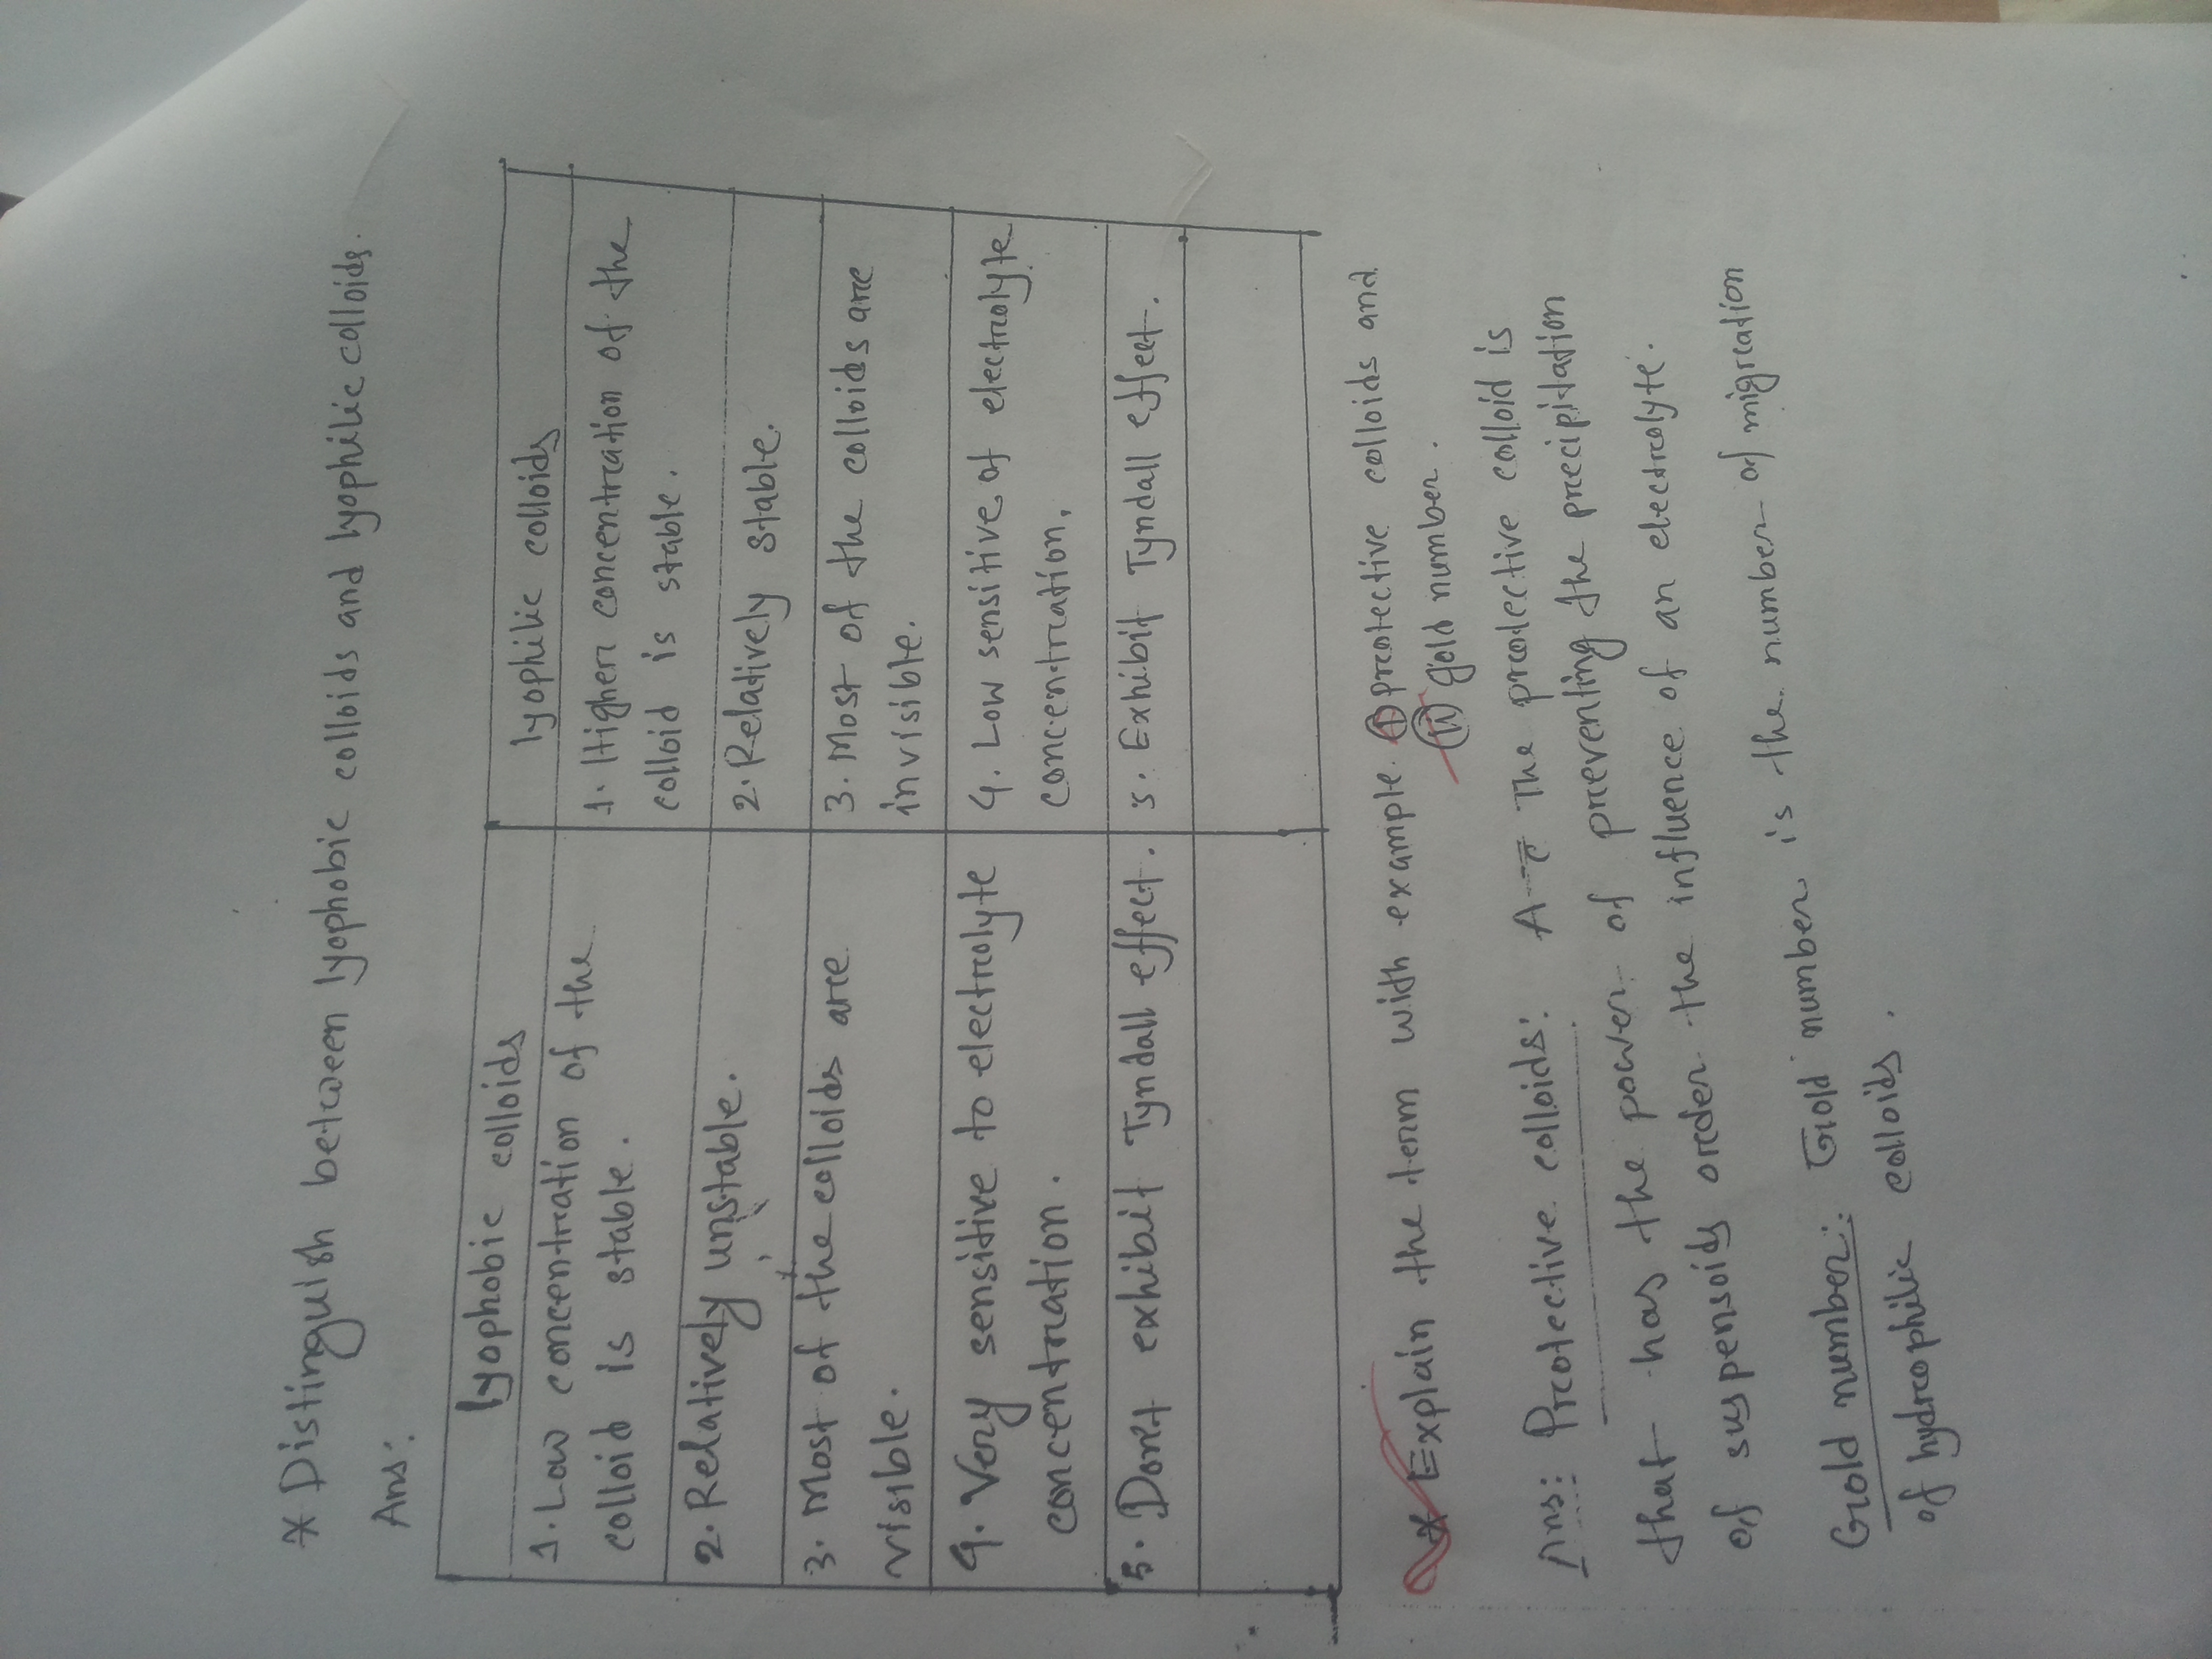 * Distinguish between lyophobic colloids and lyophilic colloids.
Ans:
lyophobic colloids
lyophilic colloids
1. Low concentration of the
colloid is stable.
1. Higher concentration of the
colloid is stable.
2. Relatively unstable.
2. Relatively stable.
3. Most of the colloids are
visible.
3. Most of the colloids are
invisible.
4. Very sensitive to electrolyte
concentration.
4. Low sensitive of electrolyte
concentration.
5. Exhibit Tyndall effect.
5. Exhibit Tyndall effect.
* Explain the term with example. (i) protective colloids and
(ii) gold number.
Ans: Protective colloids: A The protective colloid is
that has the power of preventing the precipitation
of suspensoids order the influence of an electrolyte.
Gold number: Gold number is the number of migration
of hydrophilic colloids.